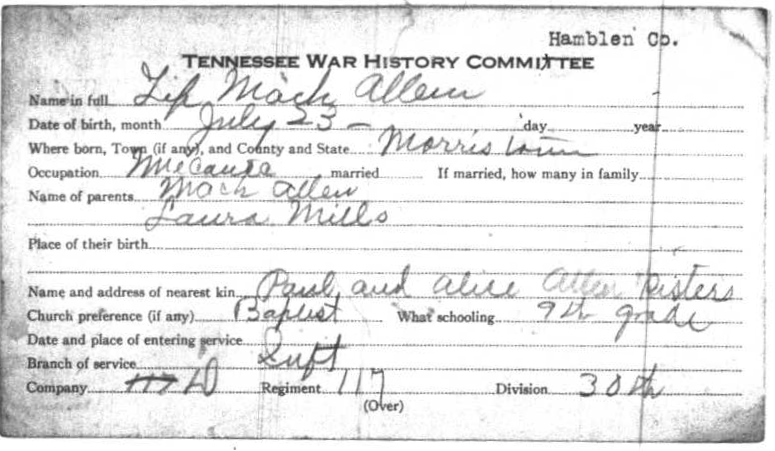 Hamblen Co.
TENNESSEE WAR HISTORY COMMITTEE
Name in full Zip Mack Allen
Date of birth, month July 23 - day year
Where born, Town (if any), and County and State Morristown
Occupation married If married, how many in family
Name of parents Mack Allen
Laura Mills
Place of their birth
Name and address of nearest kin Paul and Alice Allen Sisters
Church preference (if any) Baptist What schooling 9th grade
Date and place of entering service
Branch of service Inft
Company 117 D Regiment 117 Division 30th
(Over)